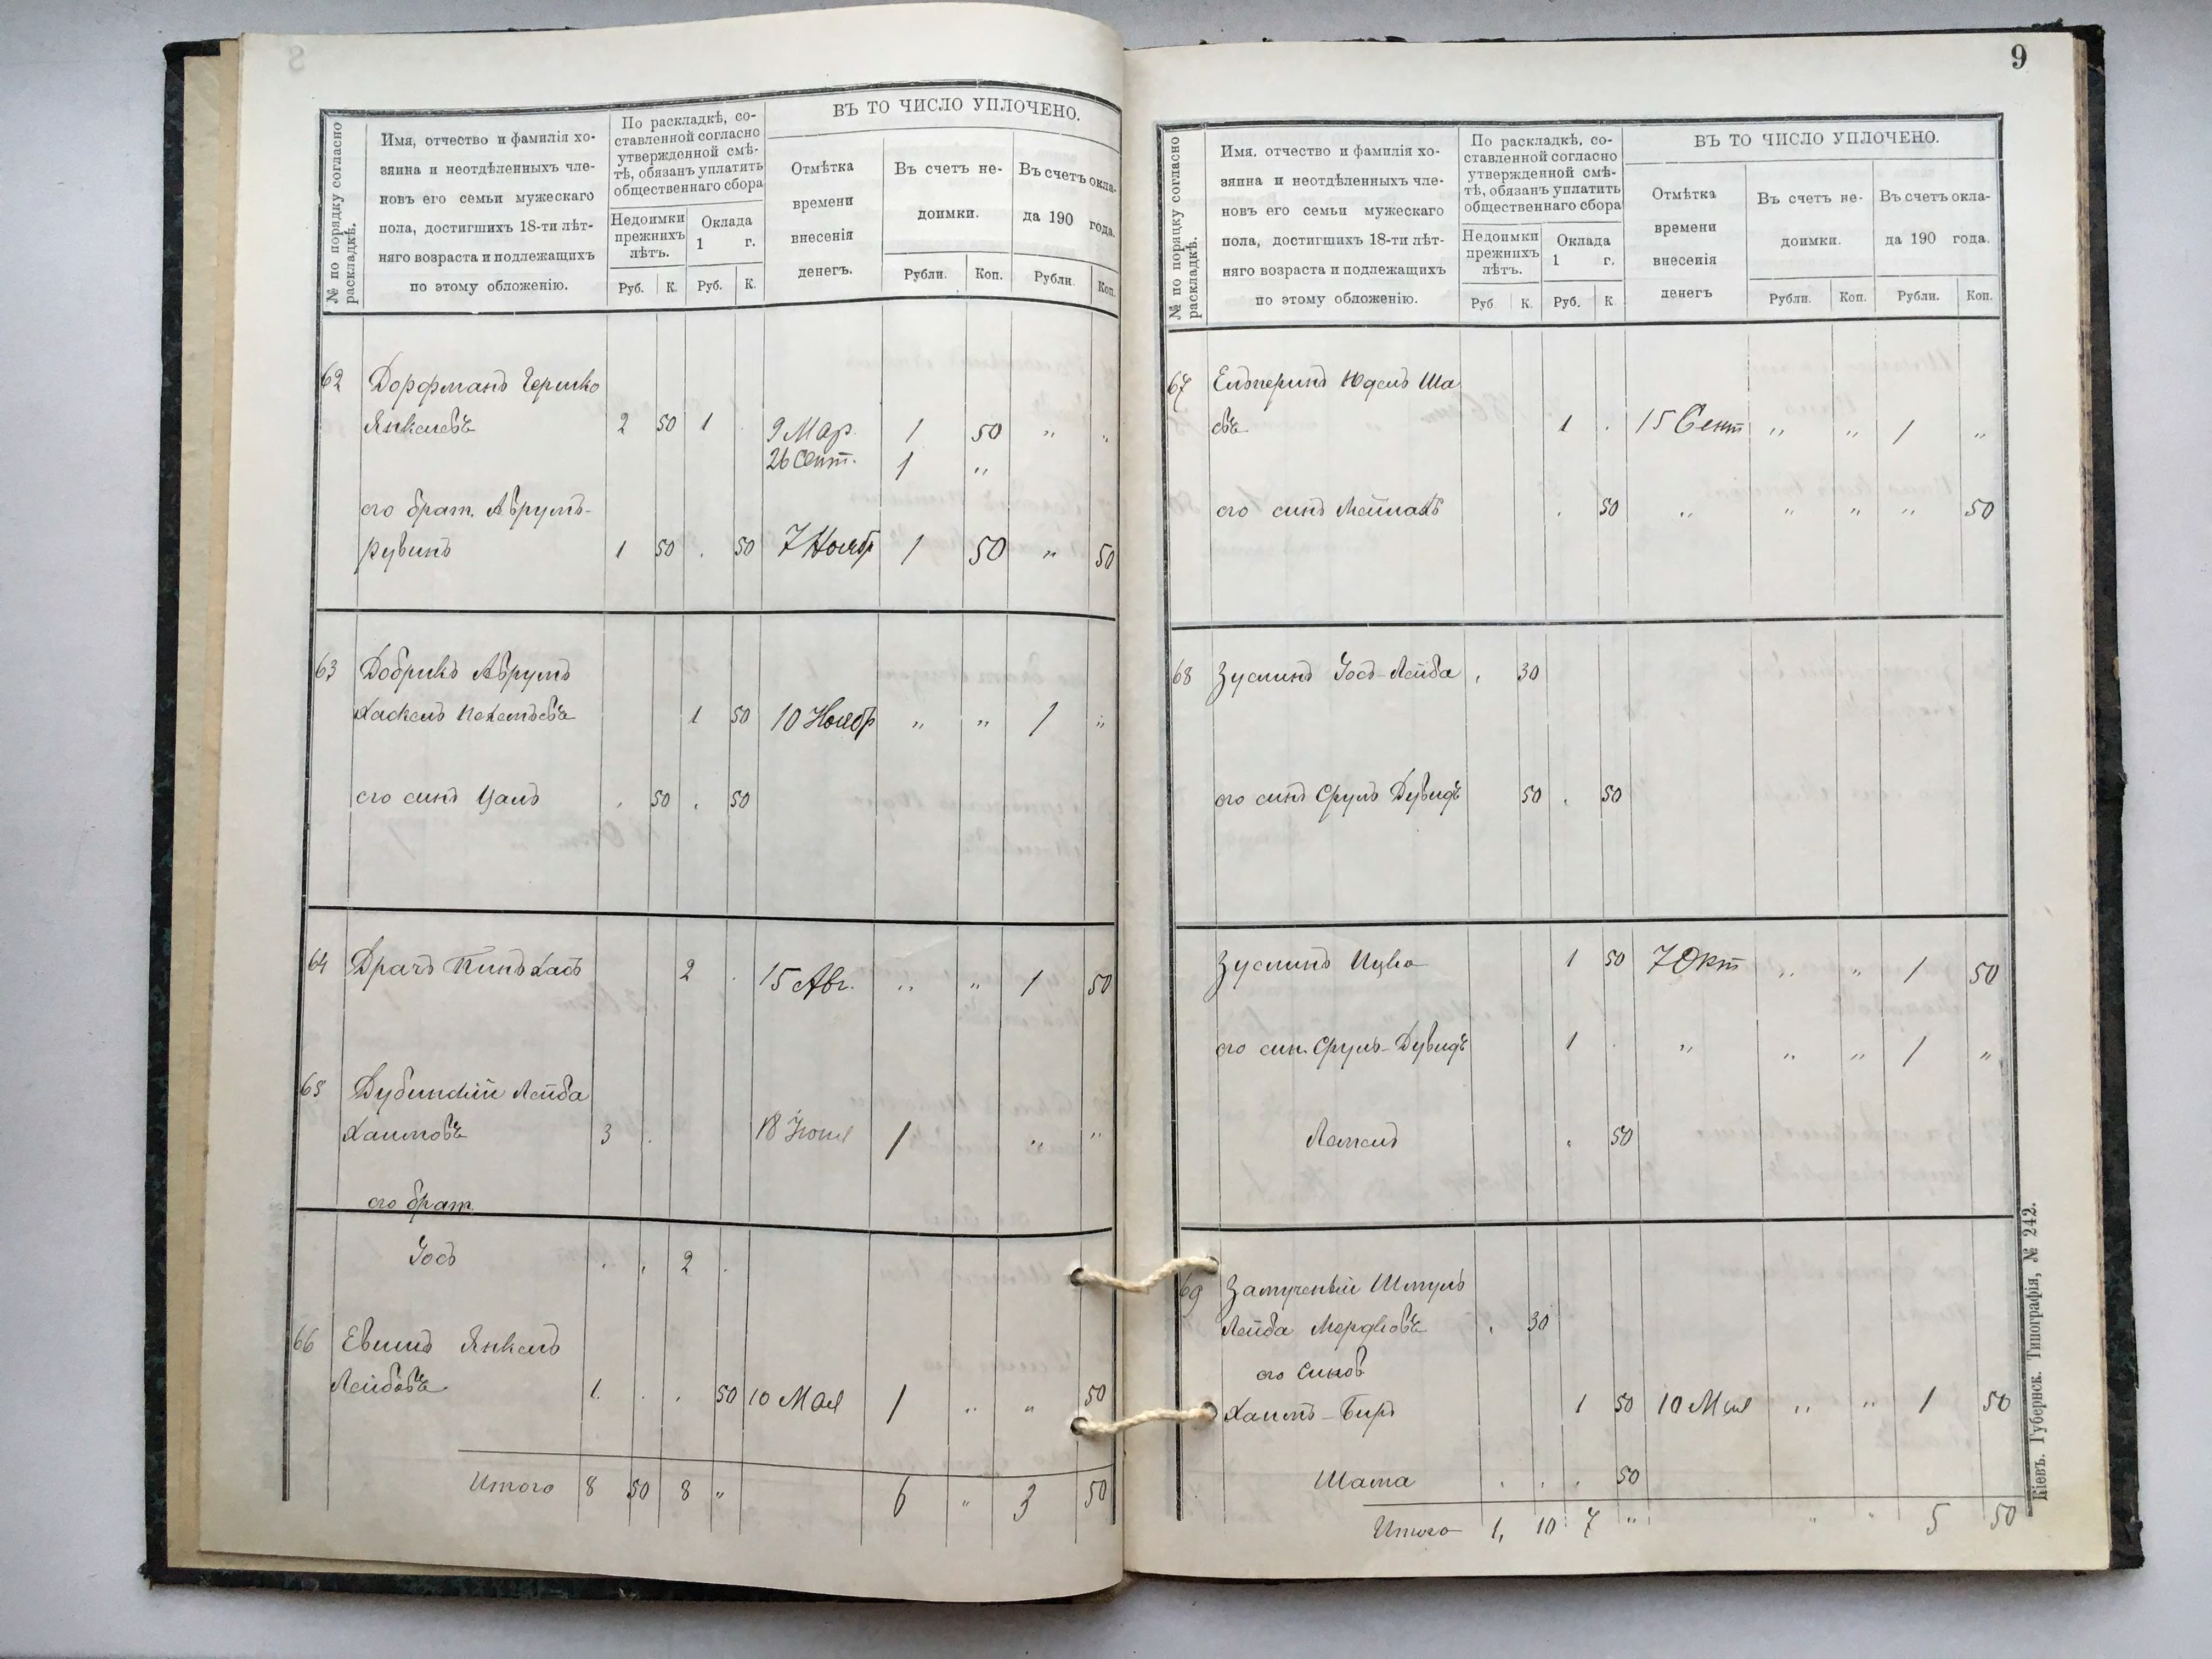 8
№ по порядку согласно раскладкѣ.
Имя, отчество и фамилія хо-
зяина и неотдѣленныхъ чле-
новъ его семьи мужескаго
пола, достигшихъ 18-ти лѣт-
няго возраста и подлежащихъ
по этому обложенію.
По раскладкѣ, со-
ставленной согласно
утвержденной смѣ-
тѣ, обязанъ уплатить
общественнаго сбора
Недоимки
прежнихъ
лѣтъ.
Оклада
1 г.
Руб. К. Руб. К.
ВЪ ТО ЧИСЛО УПЛОЧЕНО.
Отмѣтка
времени
внесенія
денегъ.
Въ счетъ не-
доимки.
Въ счетъ окла-
да 190 года.
Рубли. Коп. Рубли. Коп.
62 Дорфманъ Гершко
Янкелевъ 2 50 1 . 9 Мар. 1 50 " "
26 Сент. 1 "
его брат. Аврумъ-
Рувинъ 1 50 . 50 7 Ноябр 1 50 " 50
63 Добрикъ Аврумъ
Хаскель 1 50 10 Ноябр " " 1 "
его синъ Цаль . 50 . 50
64 Драчъ Пинъхасъ 2 . 15 Авг. " " 1 50
65 Дубинскій Лейба
Хаимовъ 3 . 18 Іюня 1 " "
его брат.
Іосъ . . 2 .
66 Евинъ Янкель
Лейбовъ 1 . . 50 10 Мая 1 " " 50
Итого 8 50 8 " 6 " 3 50
9
№ по порядку согласно раскладкѣ.
Имя, отчество и фамилія хо-
зяина и неотдѣленныхъ чле-
новъ его семьи мужескаго
пола, достигшихъ 18-ти лѣт-
няго возраста и подлежащихъ
по этому обложенію.
По раскладкѣ, со-
ставленной согласно
утвержденной смѣ-
тѣ, обязанъ уплатить
общественнаго сбора
Недоимки
прежнихъ
лѣтъ.
Оклада
1 г.
Руб К. Руб. К.
ВЪ ТО ЧИСЛО УПЛОЧЕНО.
Отмѣтка
времени
внесенія
денегъ
Въ счетъ не-
доимки.
Въ счетъ окла-
да 190 года.
Рубли. Коп. Рубли. Коп.
67 Ельперинъ Юдель Ша
евъ 1 . 15 Сент " " 1 "
его синъ . 50 " " " " 50
68 Зуслинъ Іось-Лейба . 30
его синъ Сруль Дувидъ 50 . 50
Зуслинъ Ицко 1 50 7 Окт " " 1 50
его син. Сруль-Дувидъ 1 . " " " 1 "
. 50
69 Замученый Шмуль
Лейба Мордковъ . 30
его синов
Хаимъ-Биръ 1 50 10 Мая " " 1 50
Шама . . . 50
Итого 1, 10 7 " " " 5 50
Кіевъ. Губернск. Типографія, № 242.